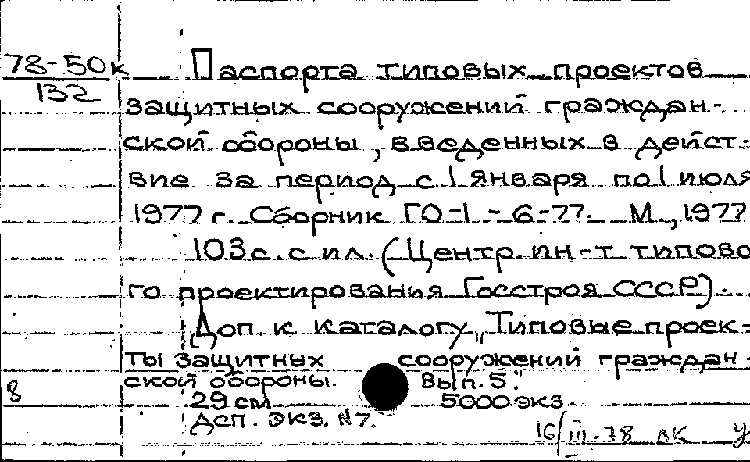 78-50к
132
Паспорта типовых проектов
защитных сооружений граждан-
ской обороны, введенных в дейст-
вие за период с 1 января по 1 июля
1977 г. Сборник ГО-1-6-77. М., 1977
103 с. с ил. (Центр. ин-т типово
го проектирования Госстроя СССР).
Доп. к каталогу „Типовые проек-
ты защитных сооружений граждан-
ской обороны. Вып. 5."
8
29 см 5000 экз
Дсп. экз. №7.
16/III-78 лк